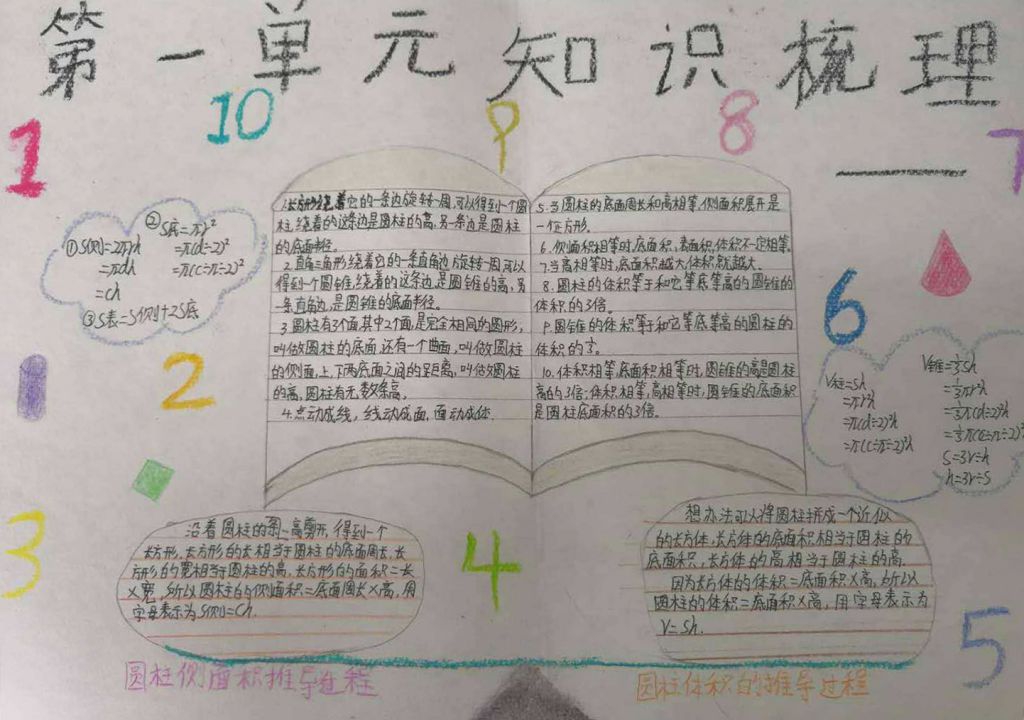 第一单元知识梳理
1
10
9
8
7
①S侧=2πrh
=πdh
=ch
②S底=πr²
=π(d÷2)²
=π(C÷π÷2)²
③S表=S侧+2S底
1.长方形绕着它的一条边旋转一周,可以得到一个圆
柱,绕着的这条边是圆柱的高,另一条边是圆柱
的底面半径。
2.直角三角形绕着它的一条直角边旋转一周,可以
得到一个圆锥,绕着的这条边是圆锥的高,另
一条直角边,是圆锥的底面半径。
3.圆柱有3个面,其中2个面,是完全相同的圆形,
叫做圆柱的底面,还有一个曲面,叫做圆柱
的侧面,上、下两底面之间的距离,叫做圆柱
的高,圆柱有无数条高。
4.点动成线,线动成面,面动成体.
5.当圆柱的底面周长和高相等,侧面积展开是
一个正方形。
6.侧面积相等时,底面积,表面积,体积不一定相等.
7.当高相等时,底面积越大,体积就越大。
8.圆柱的体积等于和它等底等高的圆锥的
体积的3倍。
9.圆锥的体积等于和它等底等高的圆柱的
体积的⅓.
10.体积相等,底面积相等时,圆锥的高是圆柱
高的3倍;体积相等,高相等时,圆锥的底面积
是圆柱底面积的3倍。
6
V柱=Sh
=πr²h
=π(d÷2)²h
=π(C÷π÷2)²h
V锥=⅓Sh
=⅓πr²h
=⅓π(d÷2)²h
=⅓π(C÷π÷2)²h
S=3V÷h
h=3V÷S
2
3
沿着圆柱的一高剪开,得到一个
长方形,长方形的长相当于圆柱的底面周长,长
方形的宽相当于圆柱的高,长方形的面积=长
×宽,所以圆柱的侧面积=底面周长×高,用
字母表示为S侧=Ch.
4
想办法可以将圆柱拼成一个近似
的长方体,长方体的底面积相当于圆柱的
底面积,长方体的高相当于圆柱的高.
因为长方体的体积=底面积×高,所以
圆柱的体积=底面积×高,用字母表示为
V=Sh.
5
圆柱侧面积推导过程
圆柱体积的推导过程